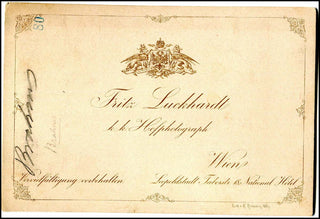 80
Fritz Luckhardt
k. k. Hofphotograph
Wien
Vervielfältigung vorbehalten
Leopoldstadt-Taborstr. 18 National Hôtel